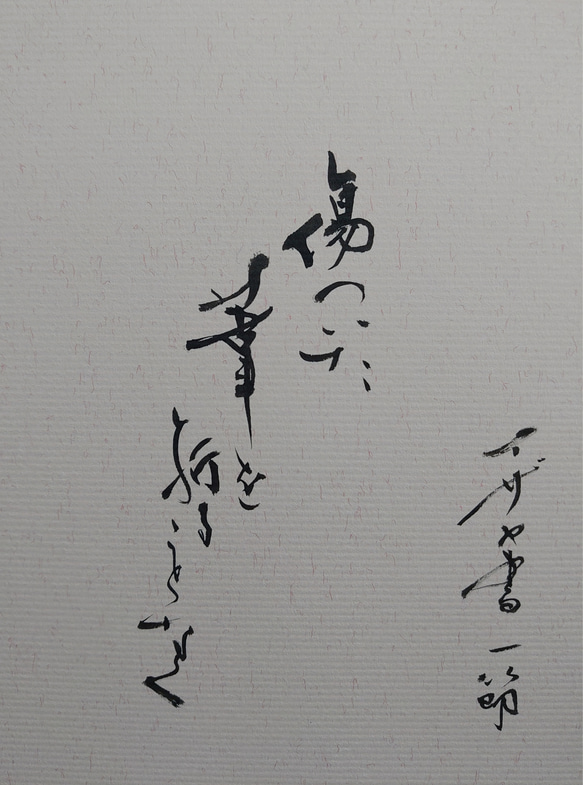 イザヤ書一節
傷ついた
葦を
折ることなく